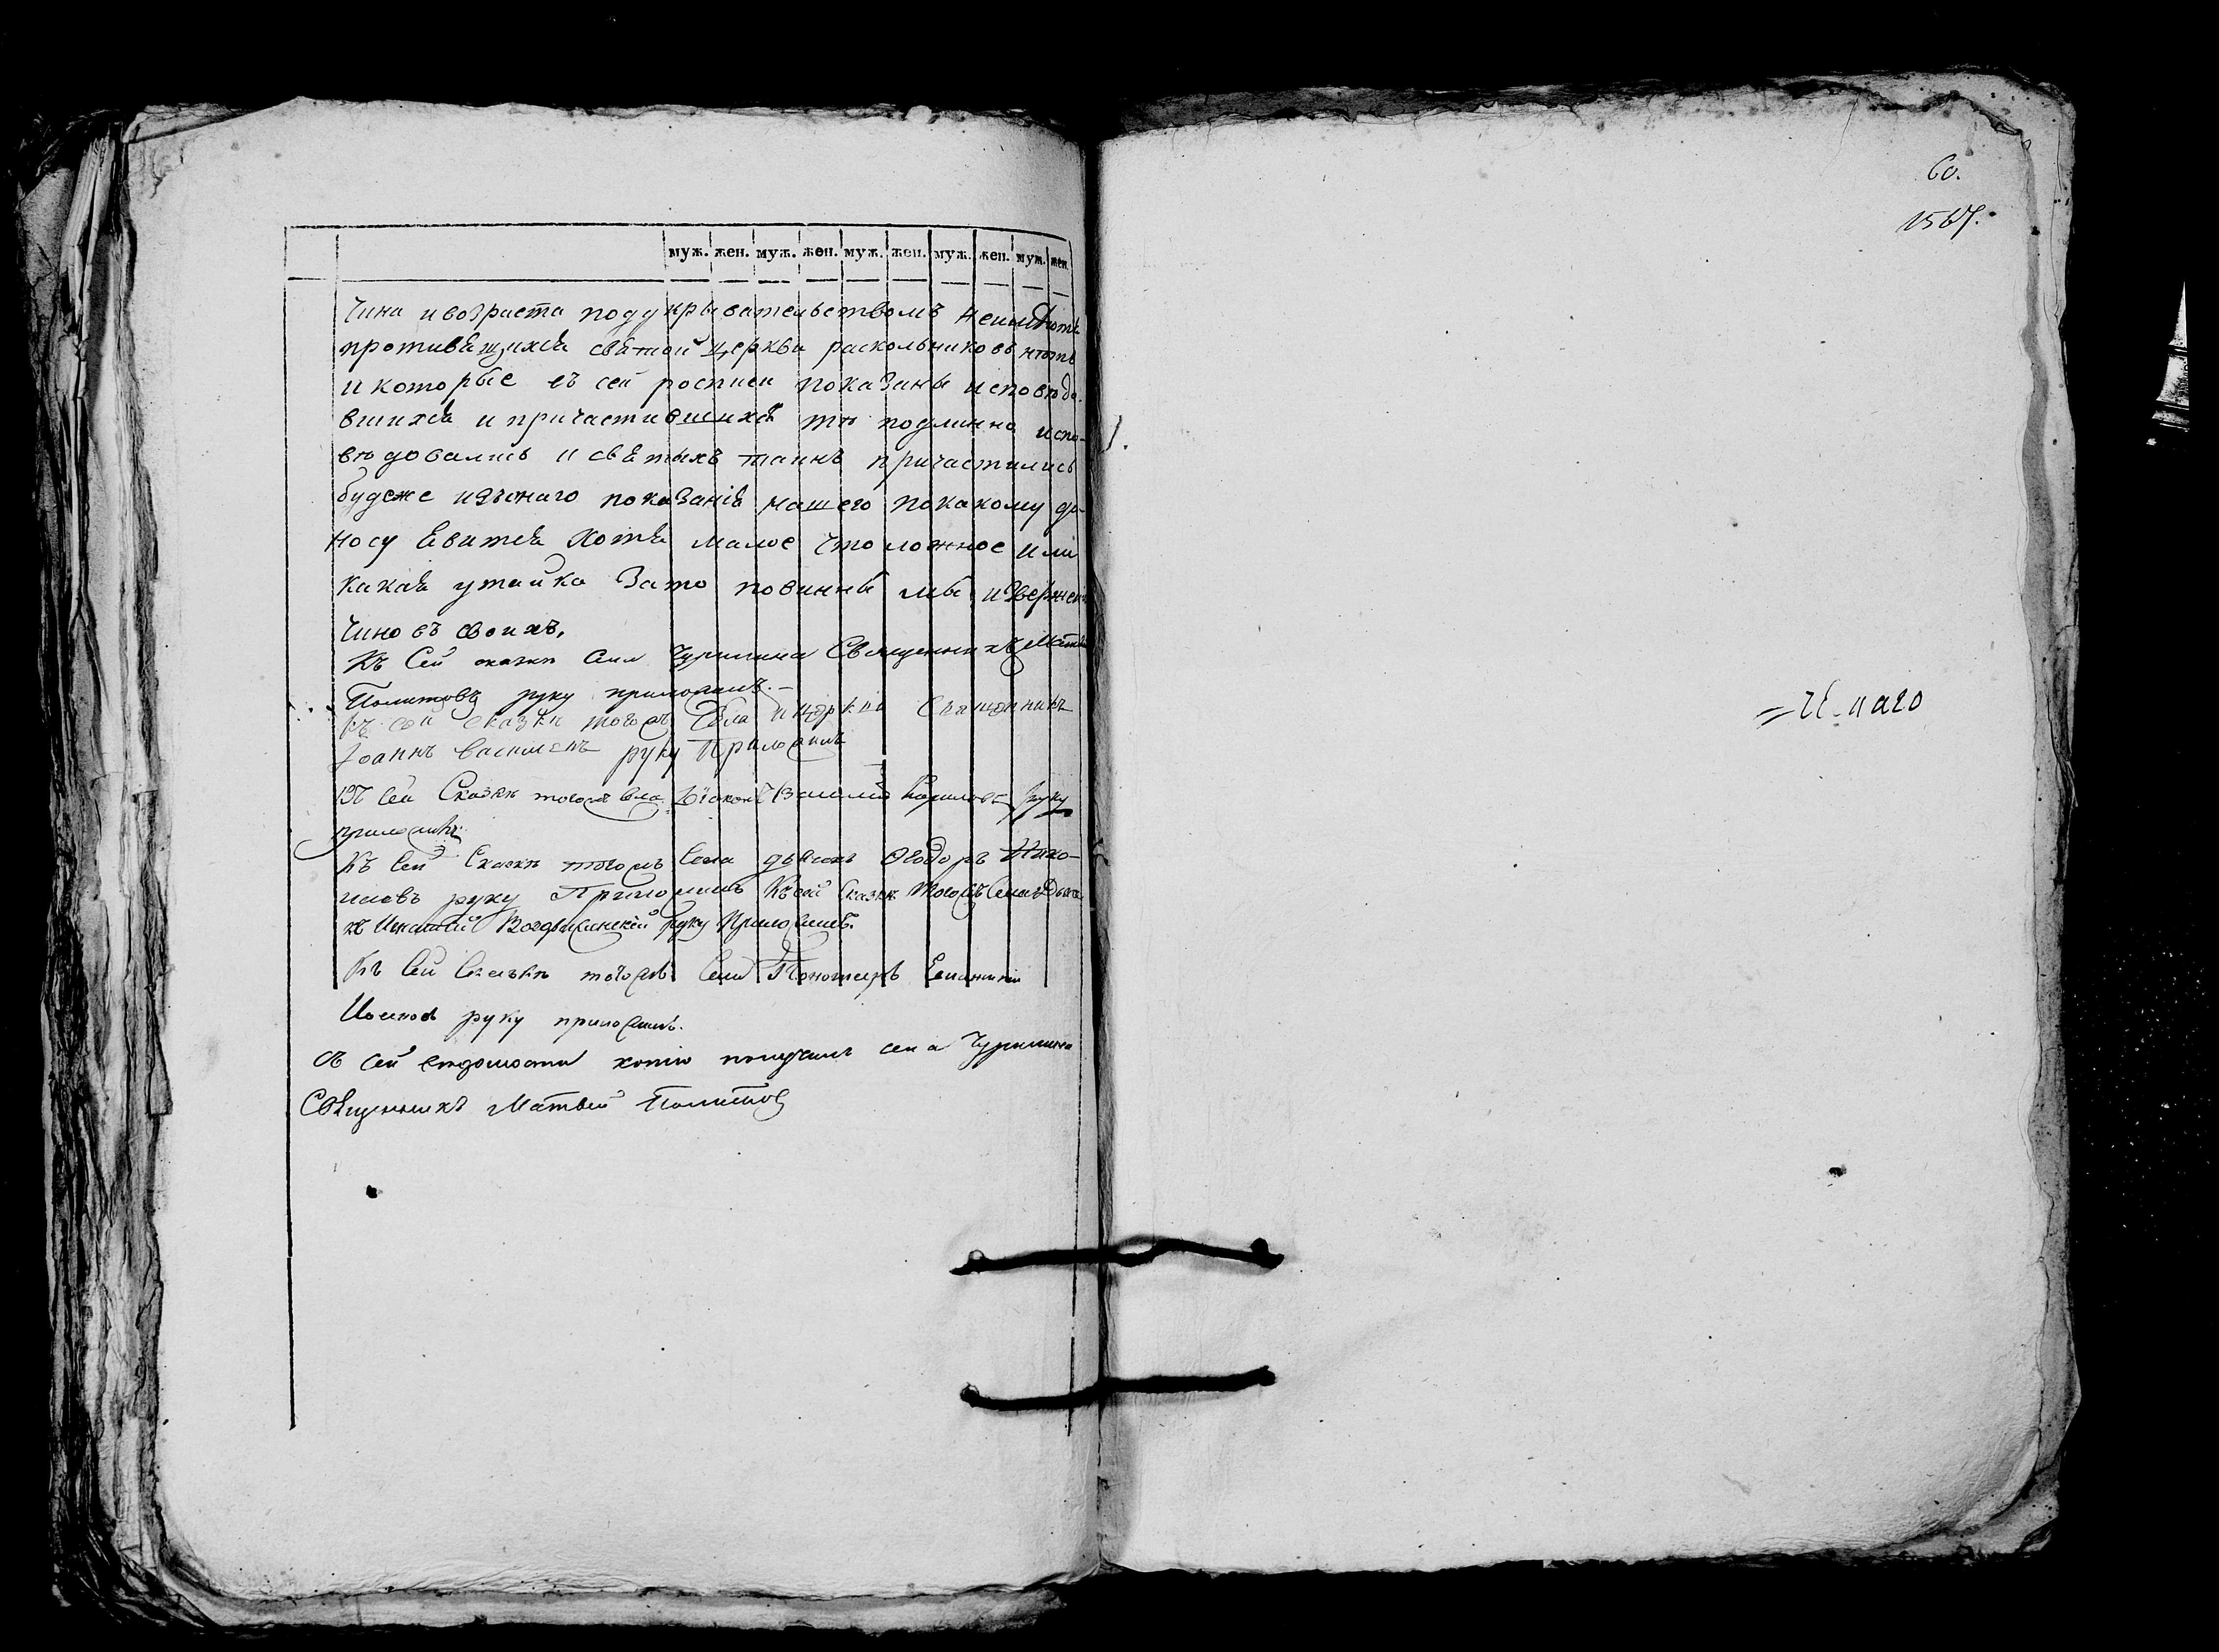 муж. жен. муж. жен. муж. жен. муж. жен. муж. жен.
чина и возраста подукрывательствомъ неимѣютъ
противѧщихсѧ свѧтой церкви раскольниковъ нѣтъ
и которые въ сей росписи показаны исповѣдо-
вшихсѧ и причастившихсѧ тѣ подлинно испо-
вѣдовались и свѧтыхъ таинъ причастились
будеже изъонаго показаніѧ нашего покакому до-
носу ѧвитсѧ хотѧ малое что ложное или
какаѧ утайка зато повинны мы изверженію
чиновъ своихъ.
Къ сей сказкѣ села Чурилина Священникъ Матвей
Политовъ руку приложилъ.
Къ сей сказки тогожъ села и церкви священникъ
Іоаннъ Васильевъ руку приложилъ
Къ сей сказкѣ тогожъ села діаконъ Василей руку
приложилъ
Къ сей сказкѣ тогожъ села дьячекъ Ѳеодоръ Нико-
лаевъ руку приложилъ Къ сей сказкѣ тогожъ села дьяче-
къ руку приложилъ.
Къ сей сказкѣ тогожъ села Пономарь
руку приложилъ.
съ сей вѣдомости копію получилъ села Чурилина
Свѧщенникъ Матвей Политовъ
60.